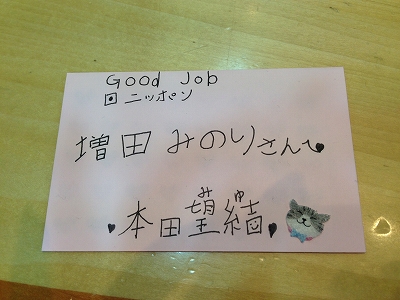 Good Job
回ニッポン
増田 みのりさんへ♥
み ゆ
♥本田望結♥